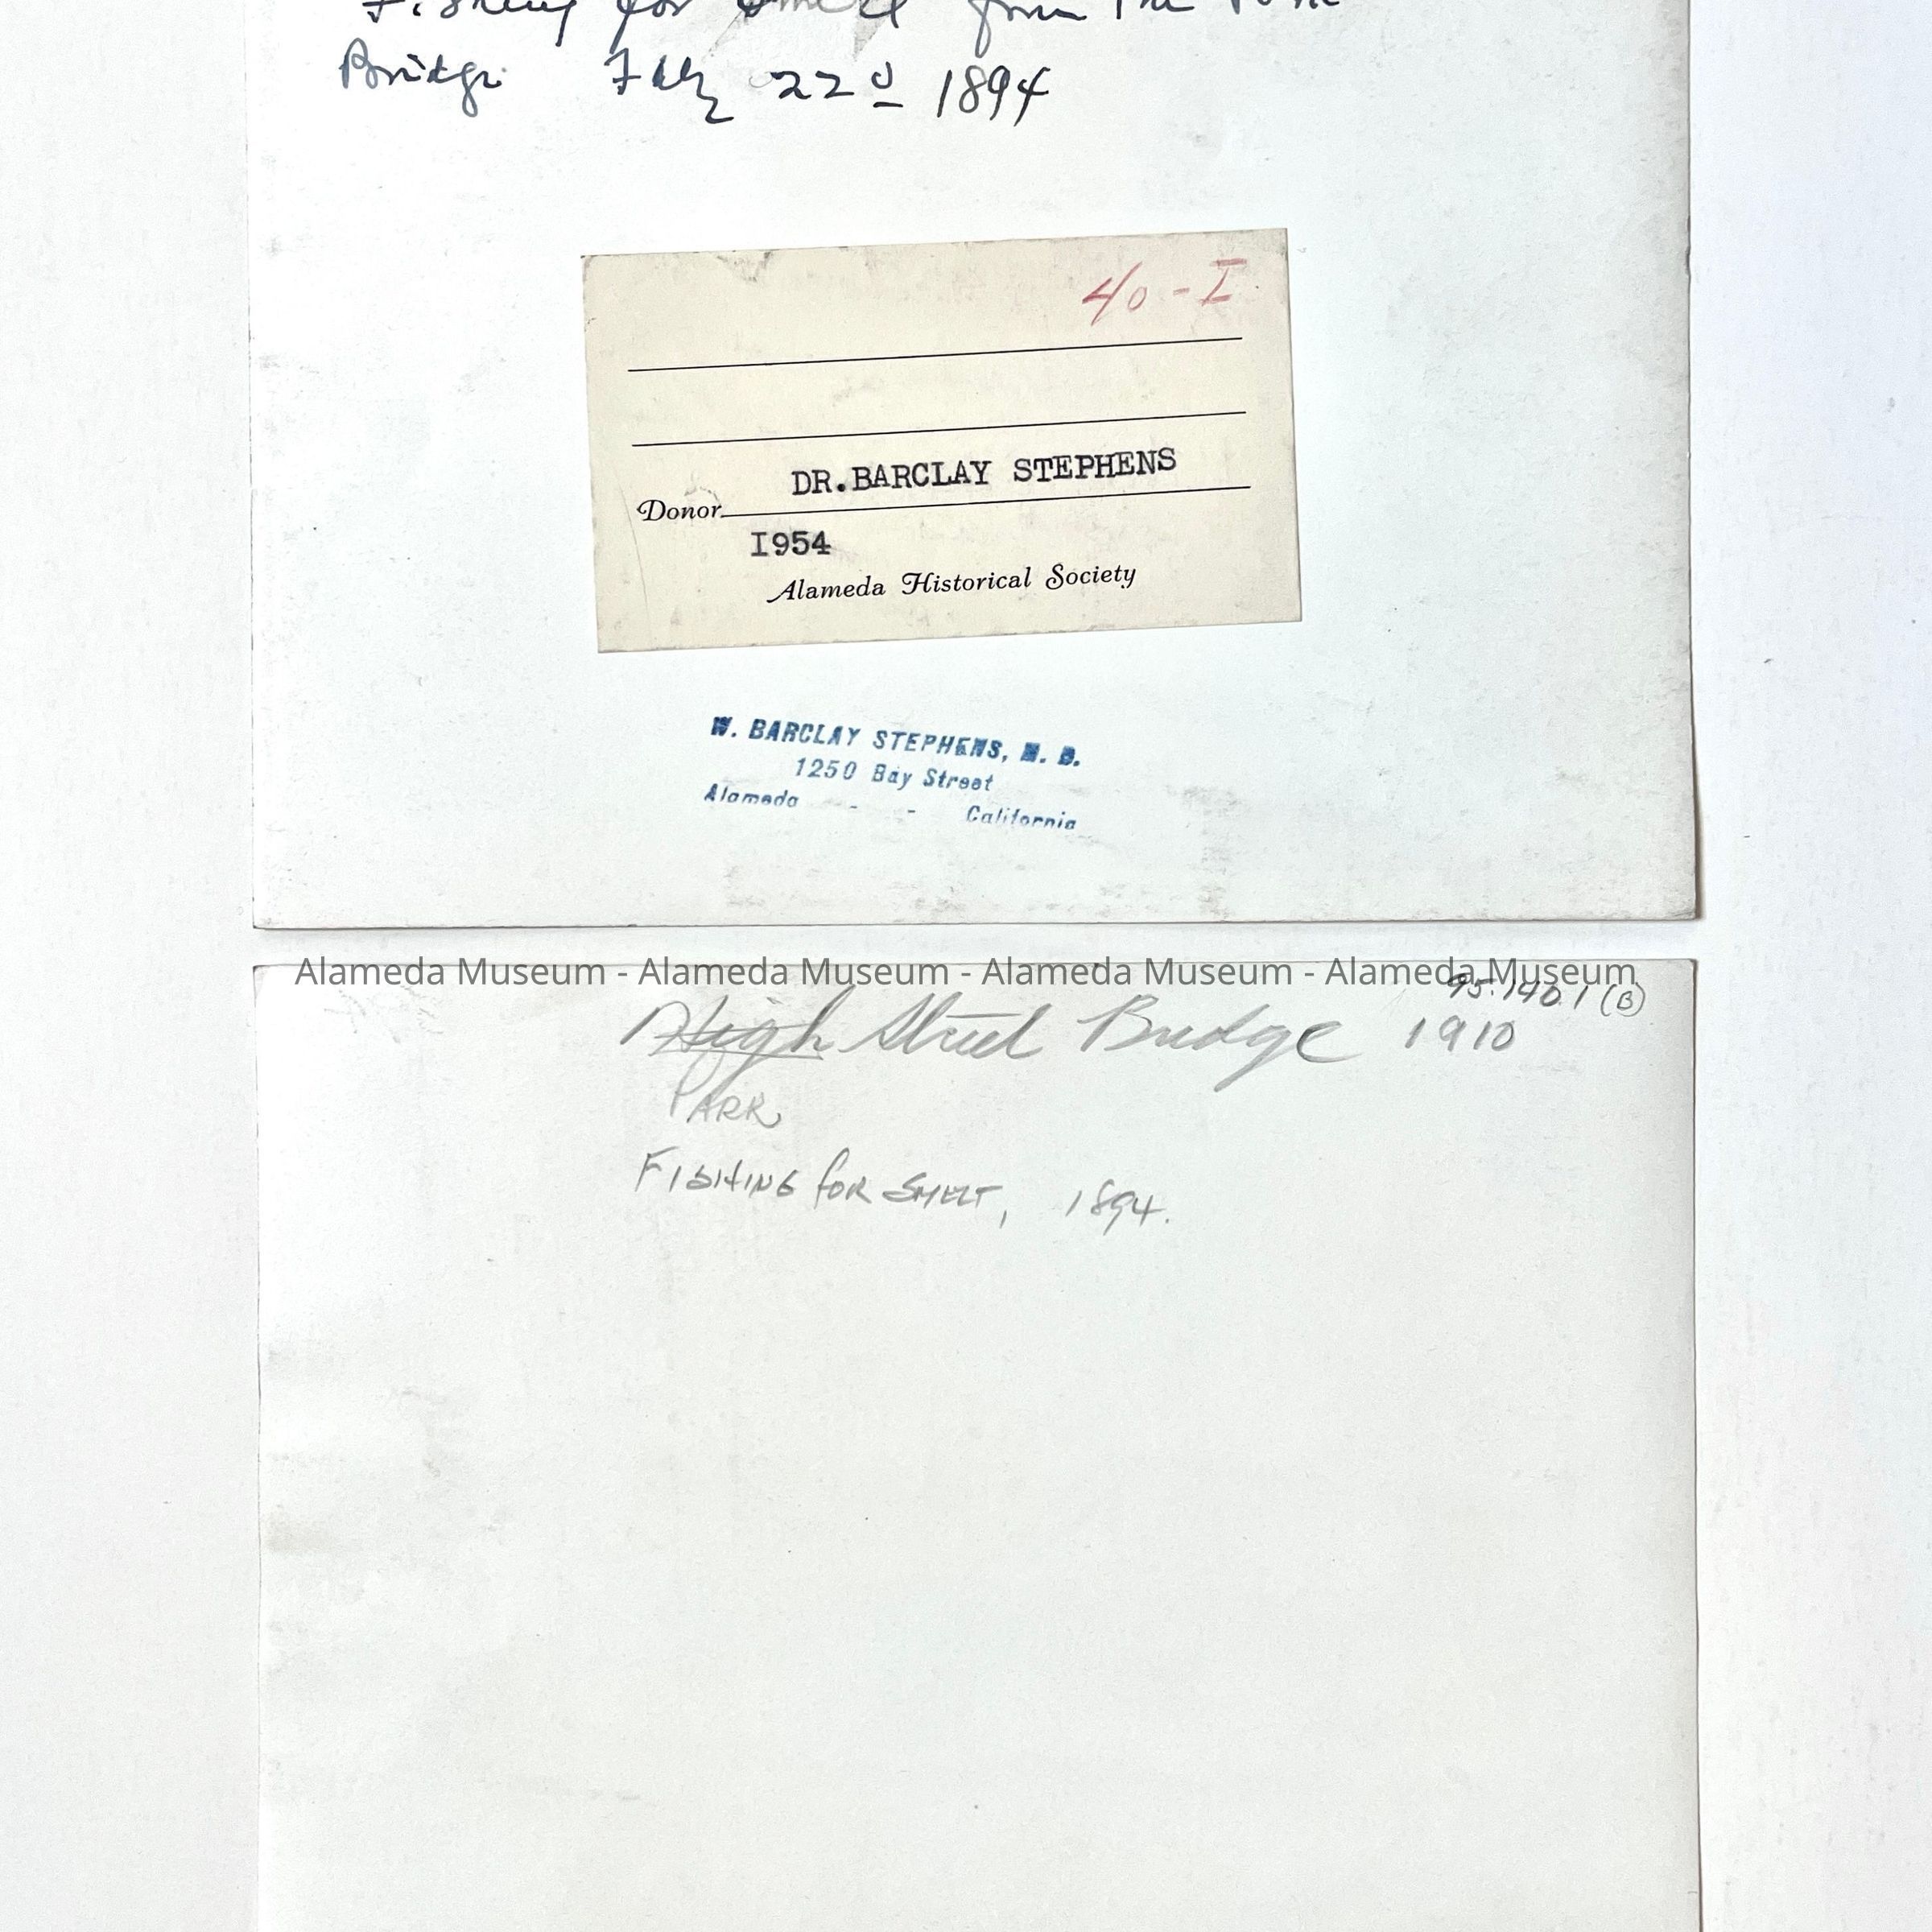 Fishing for Smelt from the Park
Bridge Feby 22d 1894
40-I
DR.BARCLAY STEPHENS
Donor
I954
Alameda Historical Society
W. BARCLAY STEPHENS, M. D.
1250 Bay Street
Alameda - - California
Alameda Museum - Alameda Museum - Alameda Museum - Alameda Museum
95.140.1 (B)
High Street Bridge 1910
PARK
FISHING FOR SMELT, 1894.